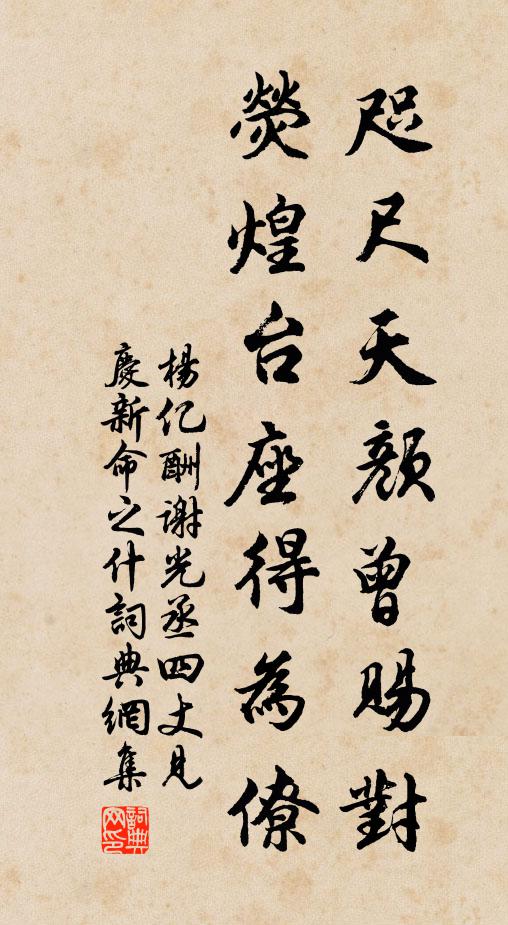 咫尺天顏曾賜對
熒煌台座得為僚
楊亿酬谢光丞四丈見
慶新命之什詞典網集
詞典网印